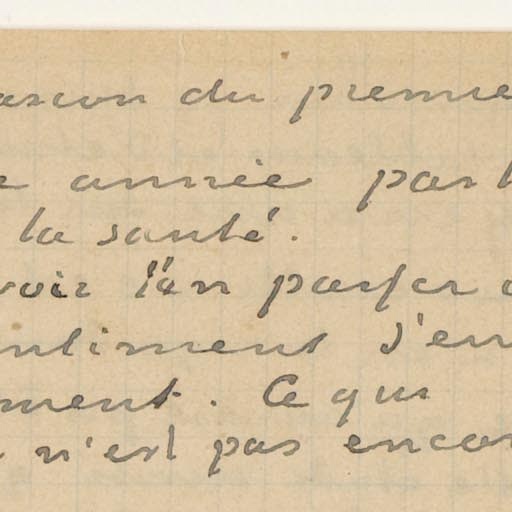 du premie
année par
la santé.
voir l'an passer
ntiment s'en
ment. Ce qui
n'est pas encor